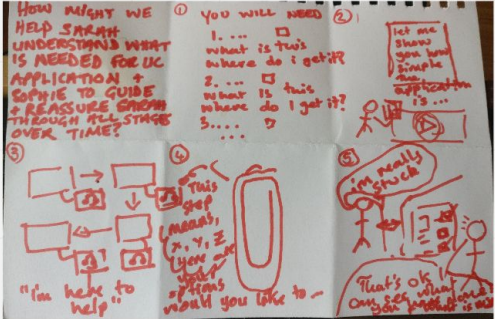 HOW MIGHT WE
HELP SARAH
UNDERSTAND WHAT
IS NEEDED FOR UC
APPLICATION +
SOPHIE TO GUIDE
REASSURE SARAH
THROUGH ALL STAGES
OVER TIME?
1
YOU WILL NEED
1. ...
what is this
where do i get it?
2. ...
what is this
where do I get it?
3. ...
2
let me
show
you how
simple
the
application
is ...
3
"i'm here to
help"
4
This
step
means,
x, y, z
here are
your
options
would you like to ...
5
i'm really
stuck
That's ok I
can see what
you